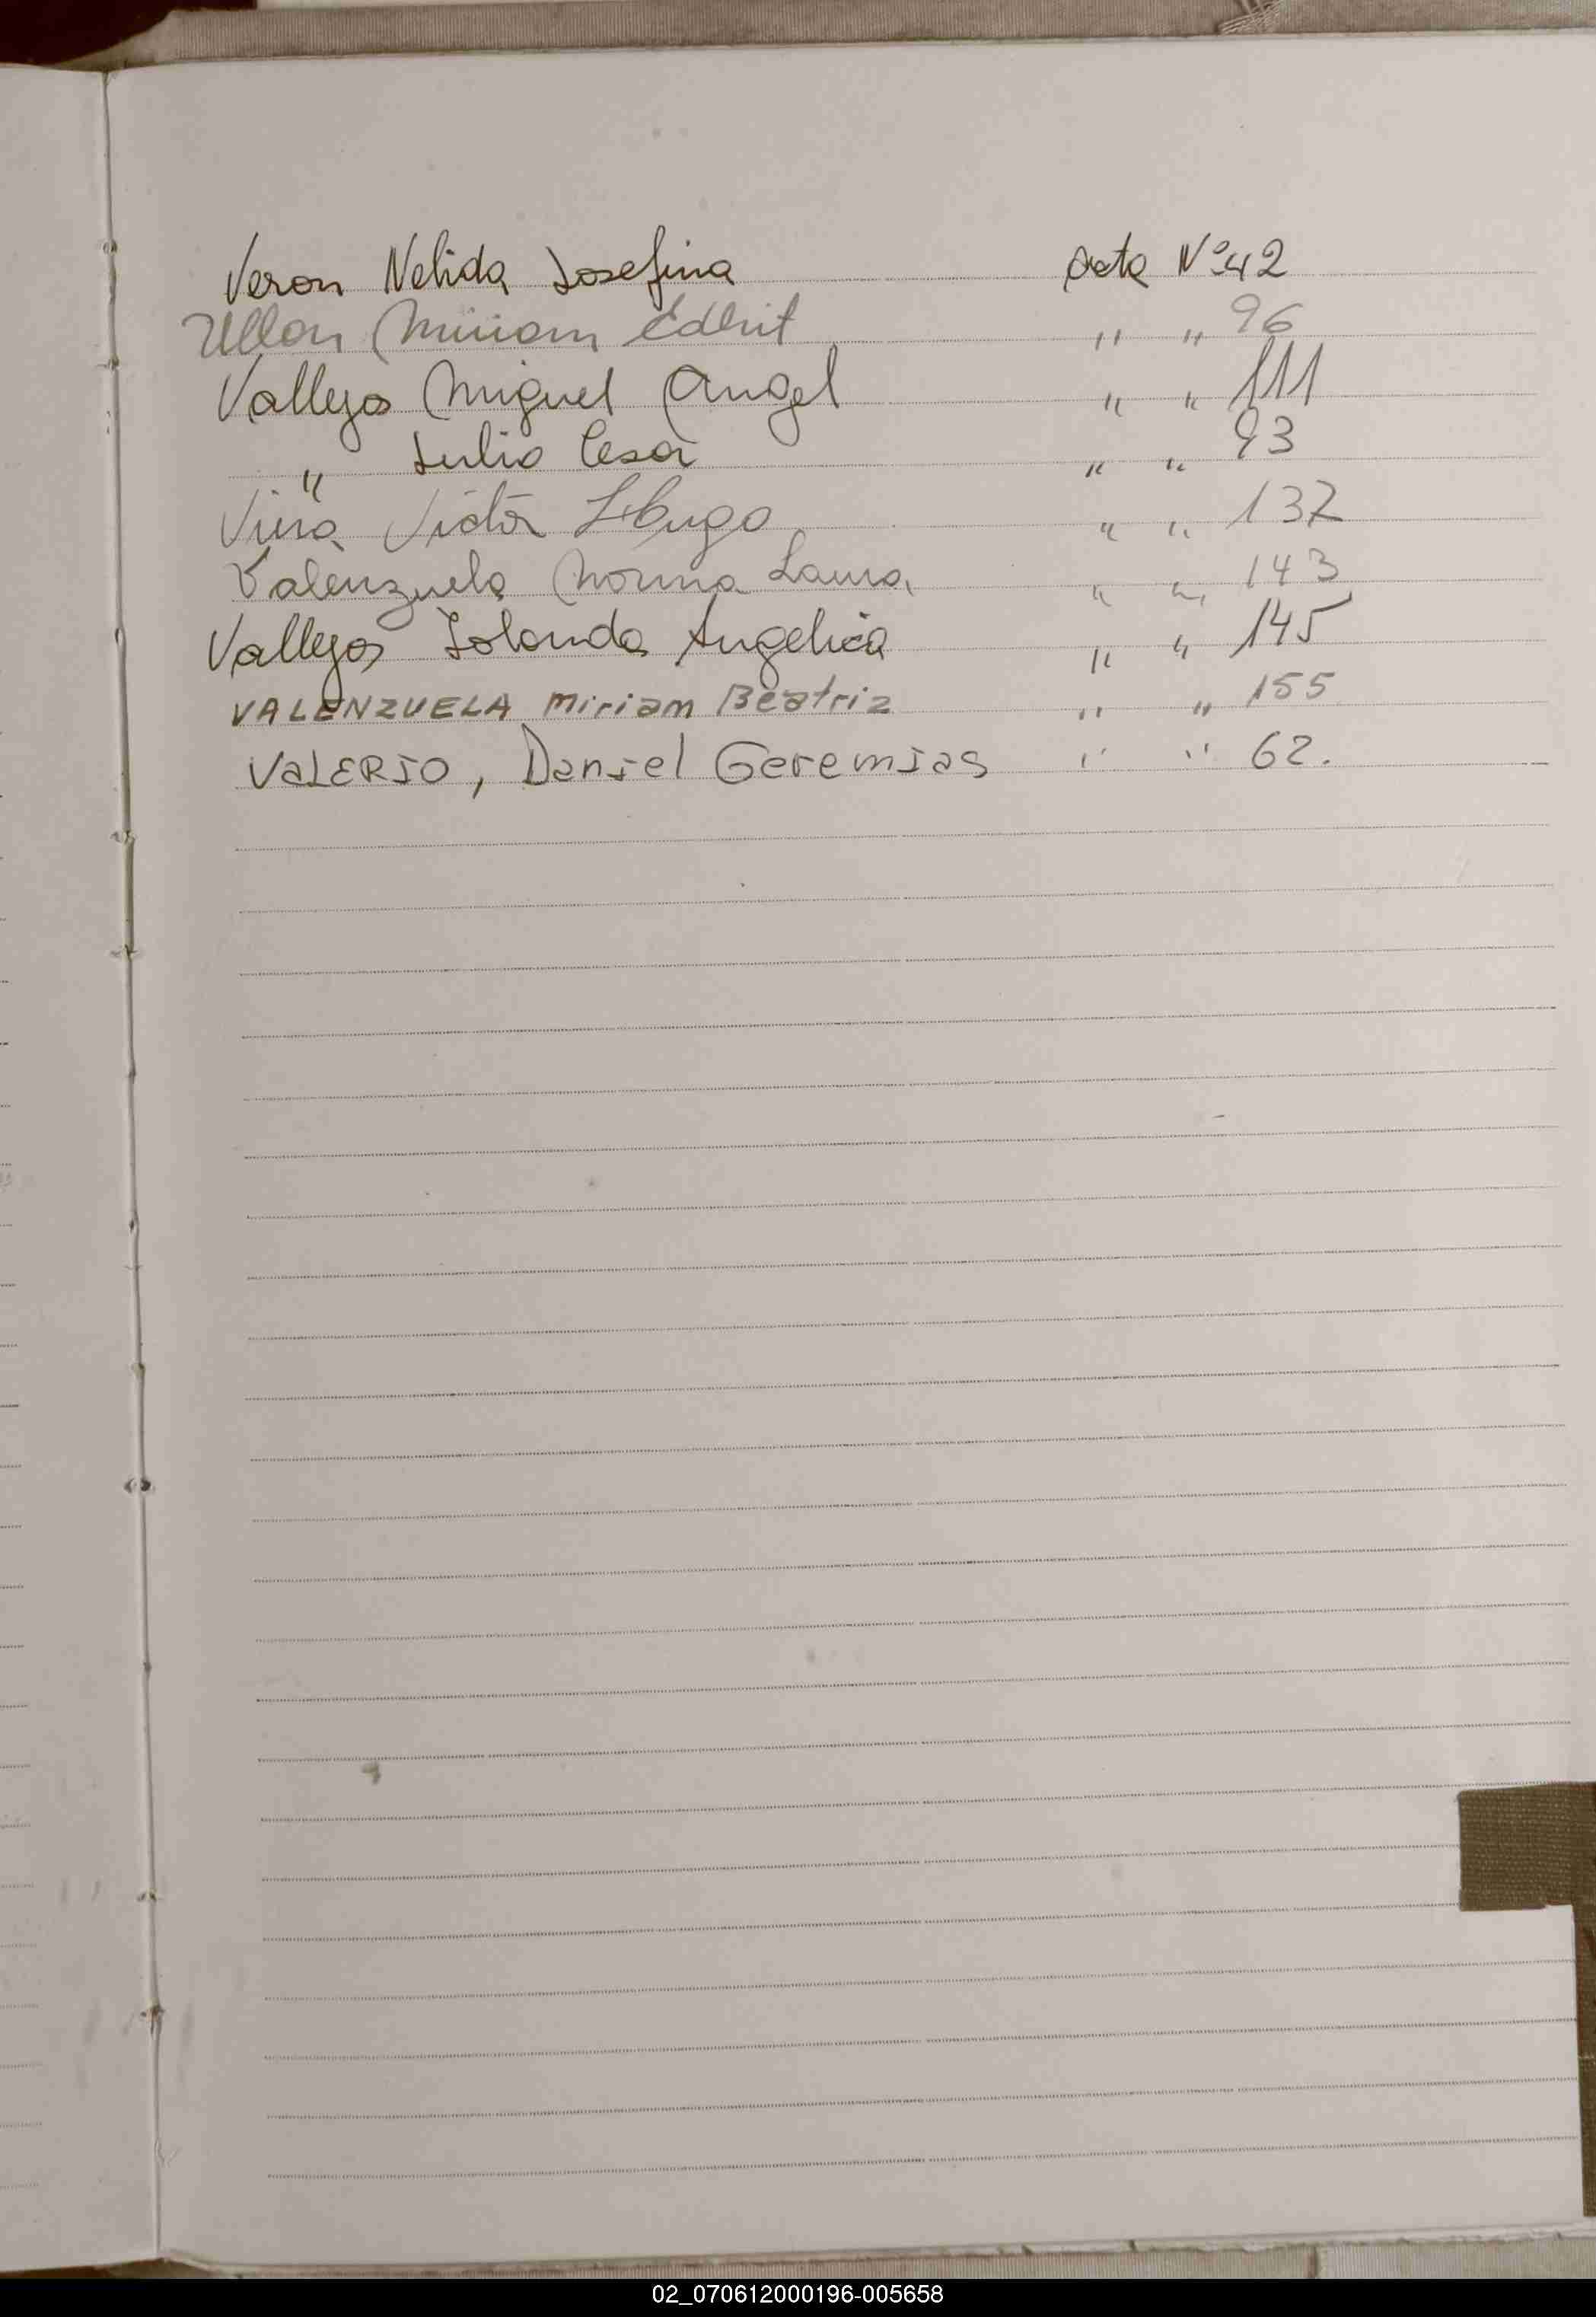 Veron Nelida Josefina Acta Nº 42
Ullon Miriam Edhit " " 96
Vallejos Miguel Angel " " 111
" Julio Cesar " " 93
Victor Hugo " " 137
Valenzuela Norma Laura " " 143
Vallejos Iolanda Angelica " " 145
VALENZUELA Miriam Beatriz " " 155
VALERIO, Daniel Geremias " " 62.
02_070612000196-005658